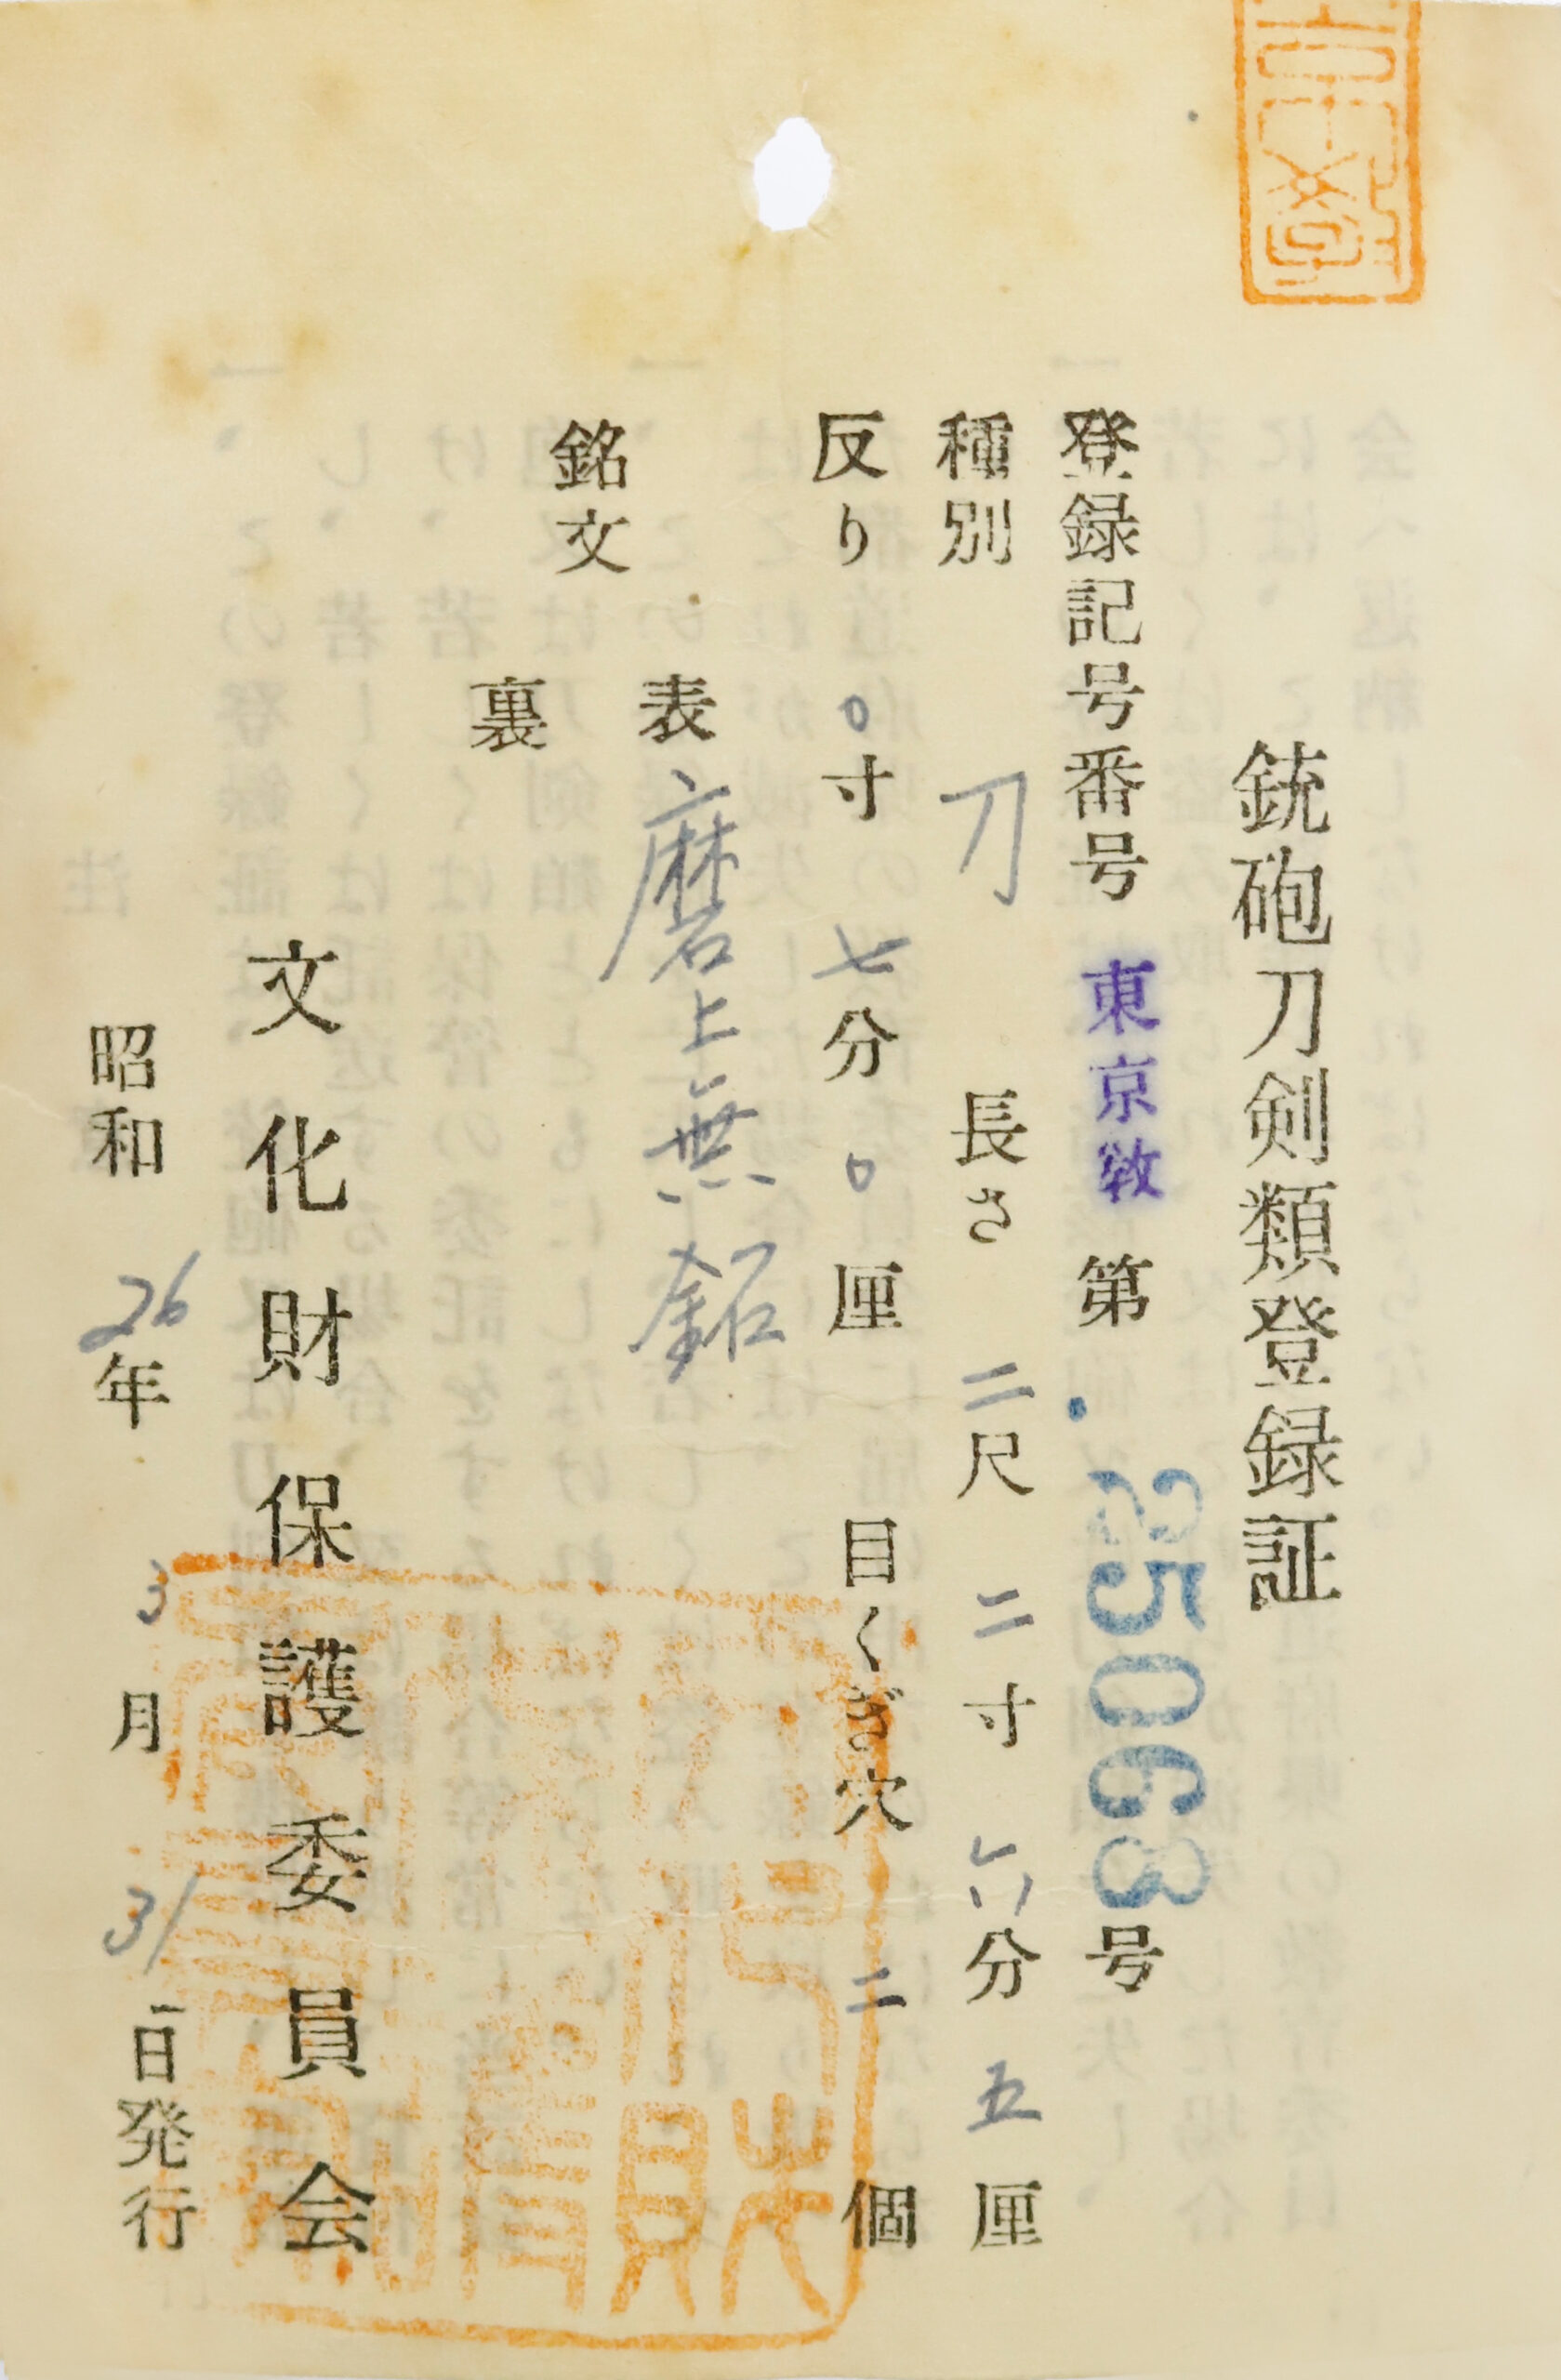 銃砲刀剣類登録証
登録記号番号 東京教 第 25068 号
種別 刀 長さ 二尺 二寸 六分 五厘
反り 〇寸 七分 〇厘 目くぎ穴 二個
銘文
表 磨上無銘
裏
文化財保護委員会
昭和 26年 3月 31日発行